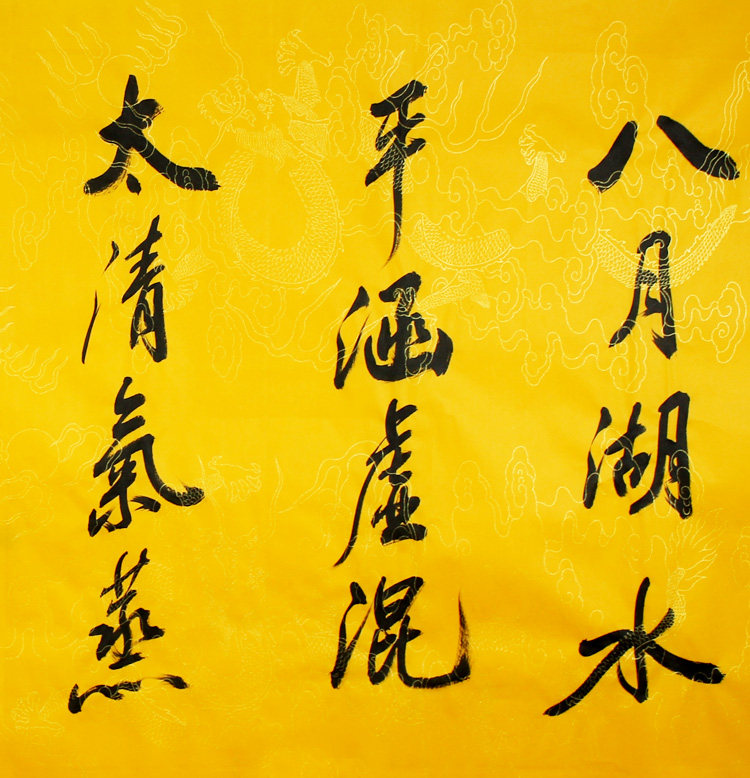 八月湖水
平涵虚混
太清氣蒸